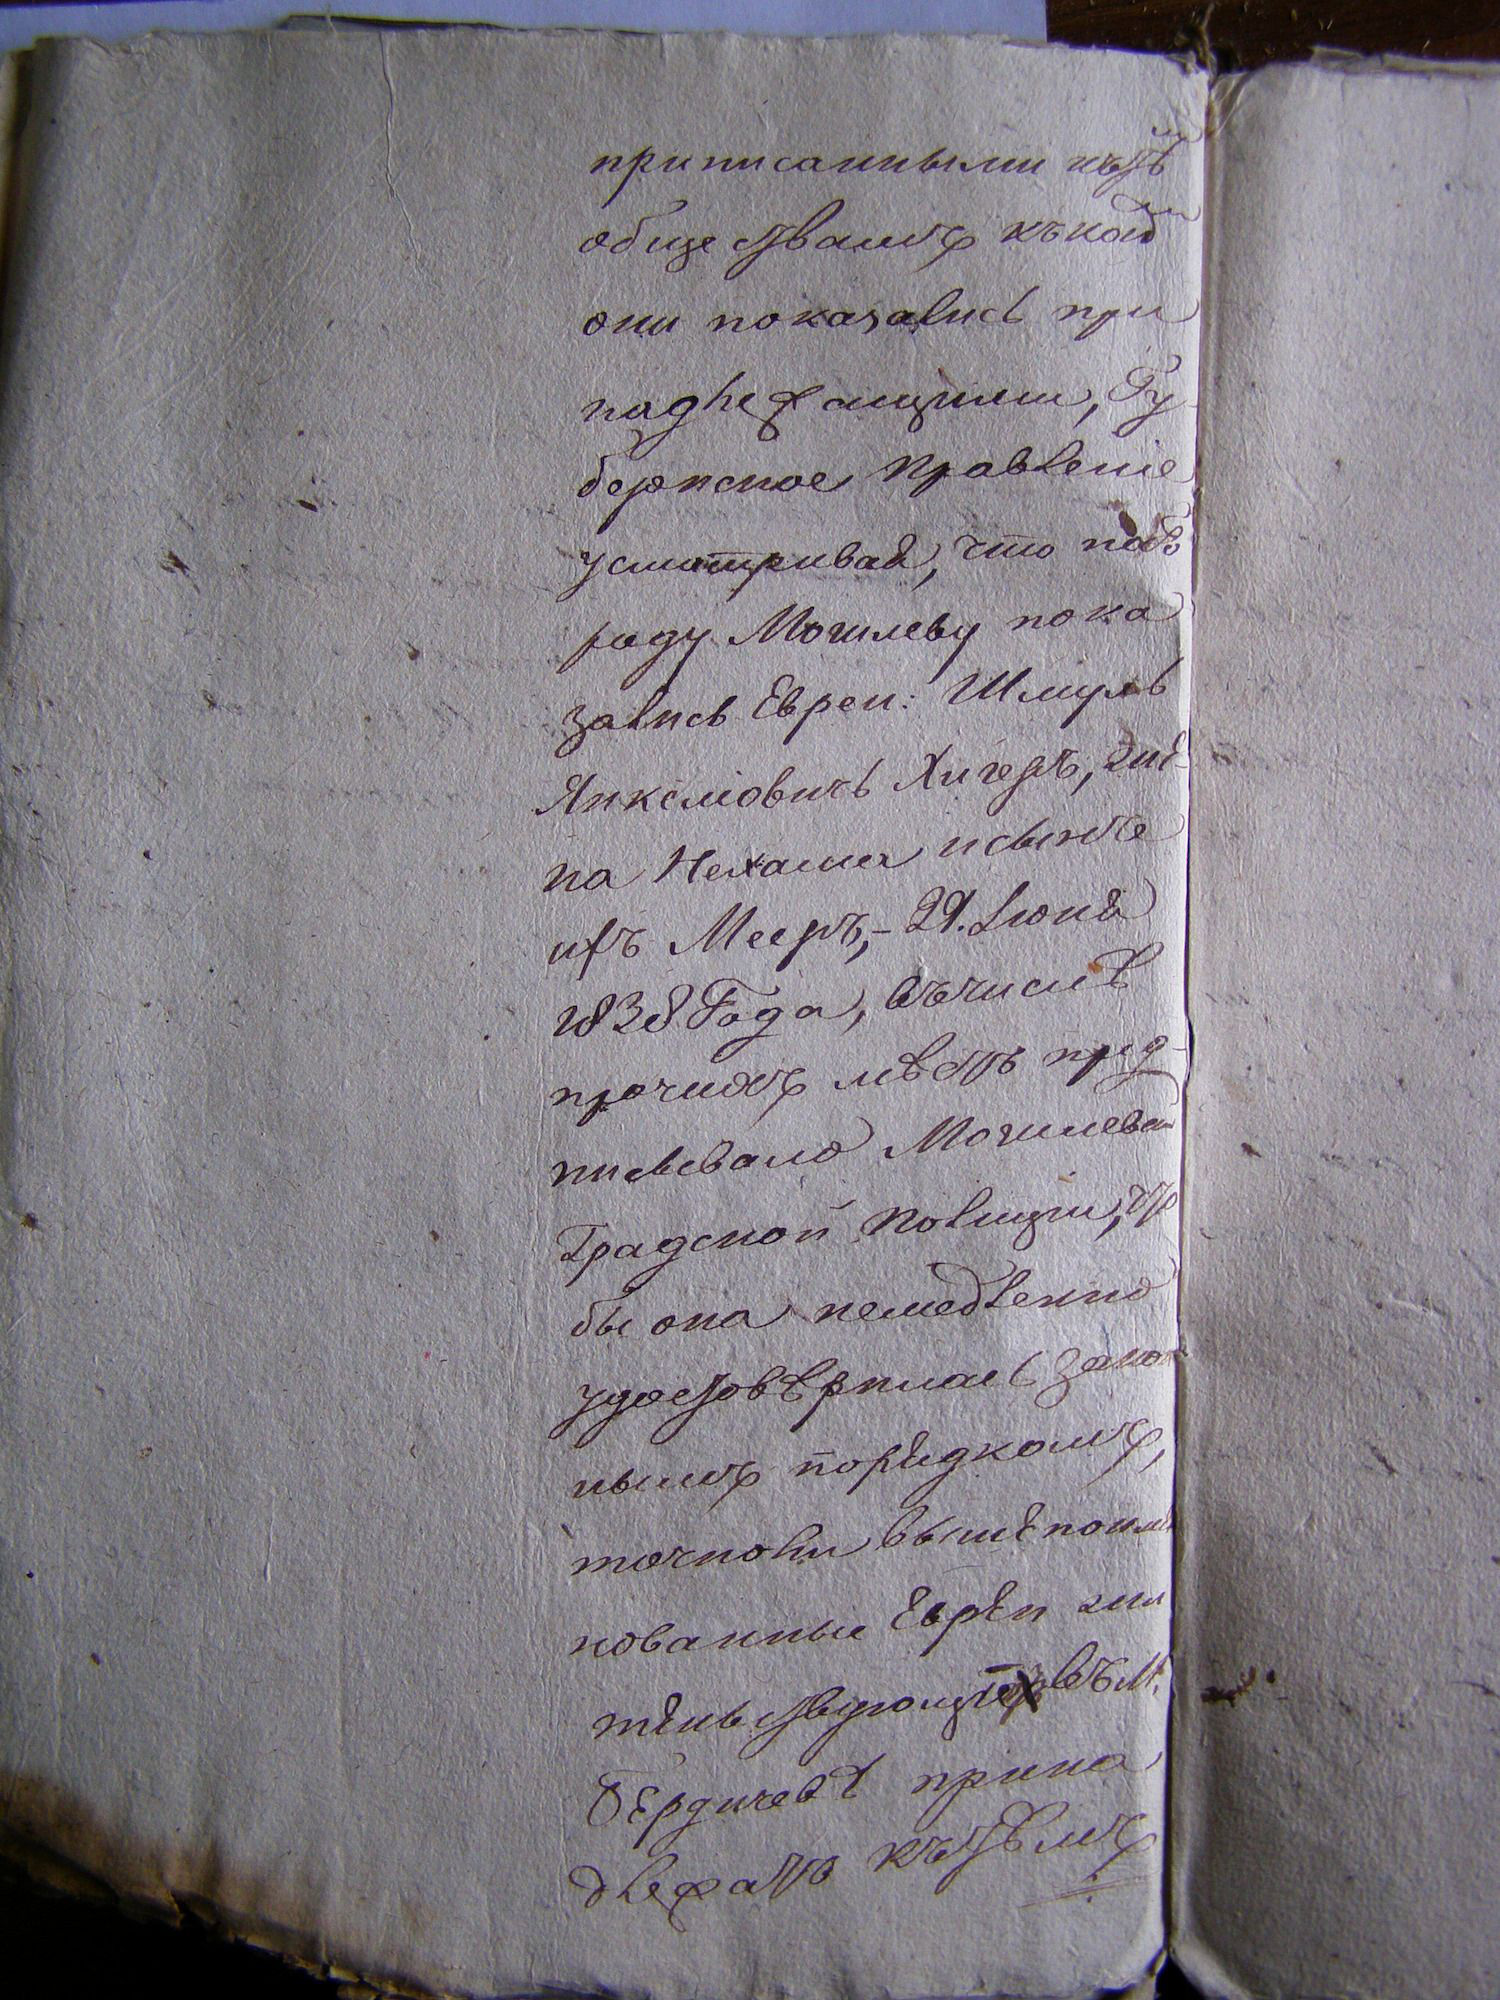 приписанными къ тѣмъ
обществамъ къ коимъ
они показались при
надлежащими, Гу
бернское Правленіе
усматривая, что по го
роду Могилеву пока
зались Евреи: Шмуль
Янкелювичь Хигеръ, жѣ-
на Нехама и сынъ
ихъ Мееръ, - 29. Іюня
1838 Года, въ числѣ
прочихъ мѣстъ пред-
писывало Могилевской
Градской Полиціи, что
бы она немедленно
удостовѣрилась закон
нымъ порядкомъ,
точноли вышепоиме
нованные Еврѣи жи
тѣльствующіе въ М.
Бѣрдичевѣ прина
длежатъ къ тѣмъ